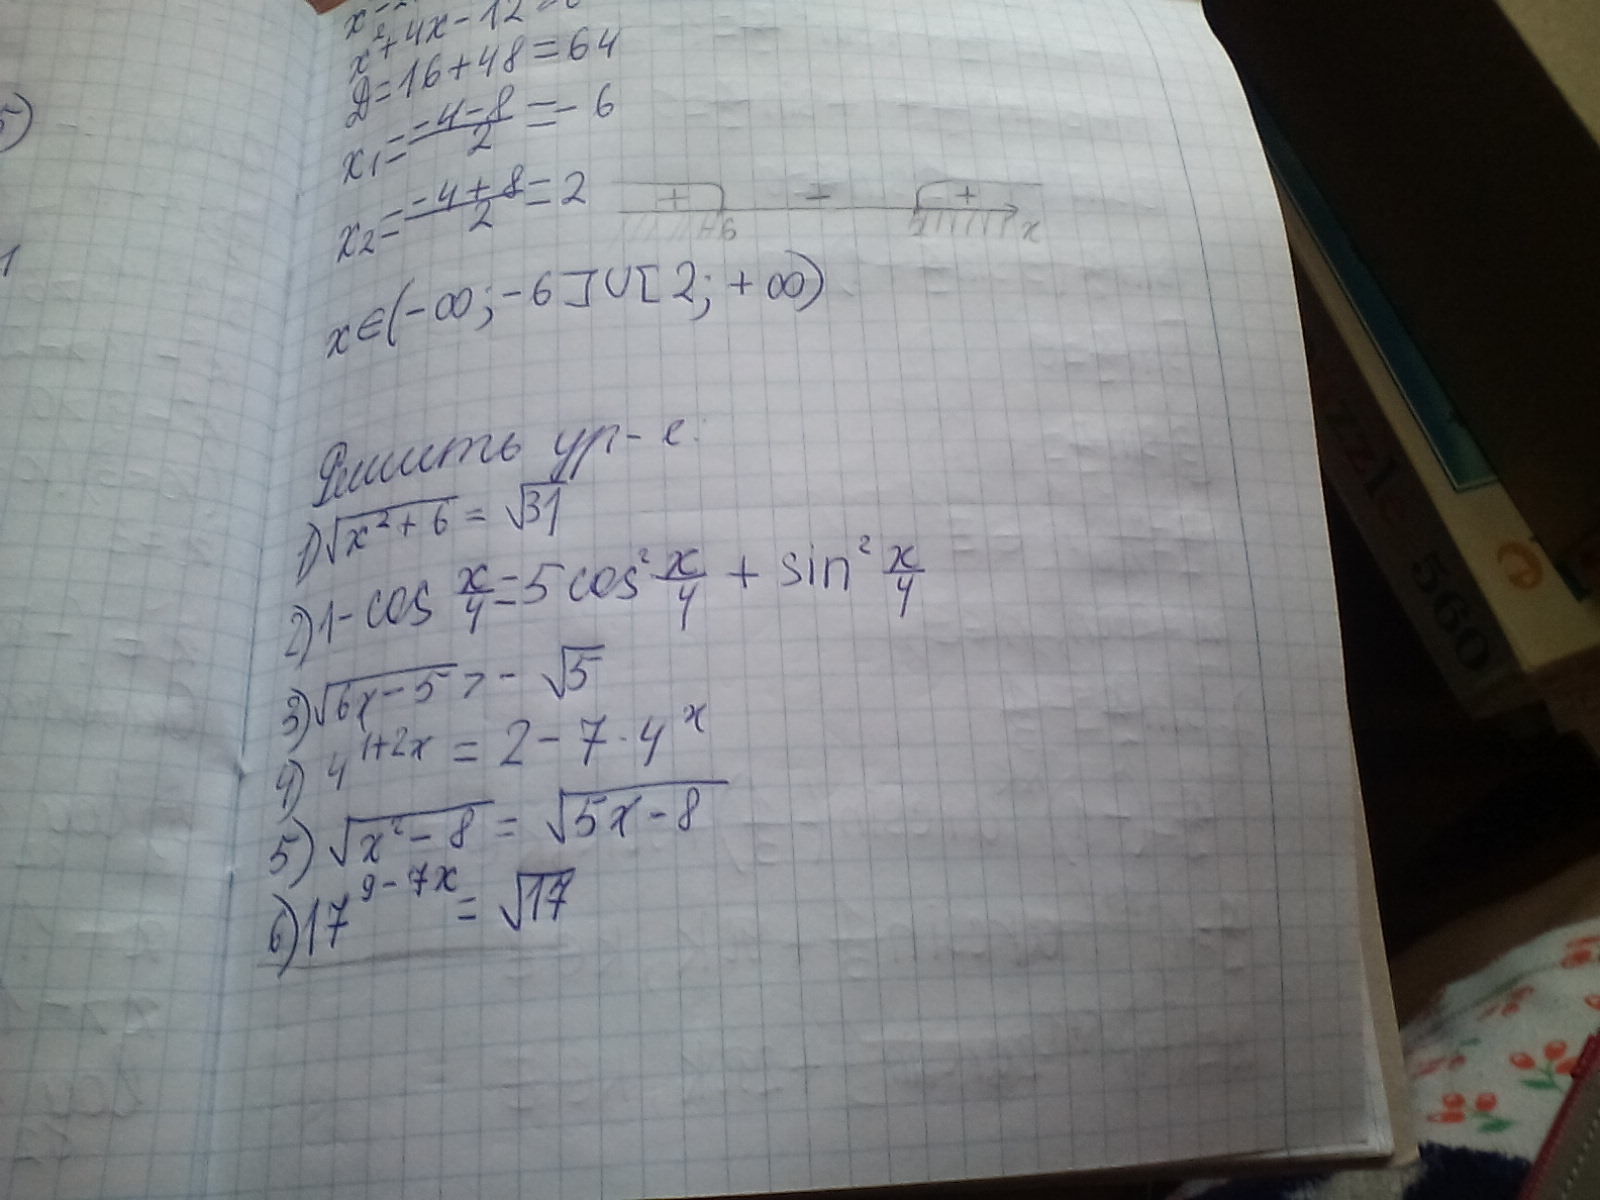 x²+4x-12=0
D=16+48=64
x₁=(-4-8)/2=-6
x₂=(-4+8)/2=2
+ - +
-6 2 x
x∈(-∞;-6]∪[2;+∞)
Решить ур-е:
1)√(x²+6) = √31
2)1-cos x/4=5cos² x/4 + sin² x/4
3)√(6x-5) > -√5
4) 4^(1+2x) = 2-7·4^x
5) √(x²-8) = √(5x-8)
6)17^(9-7x) = √17
5)
1
zzle 560